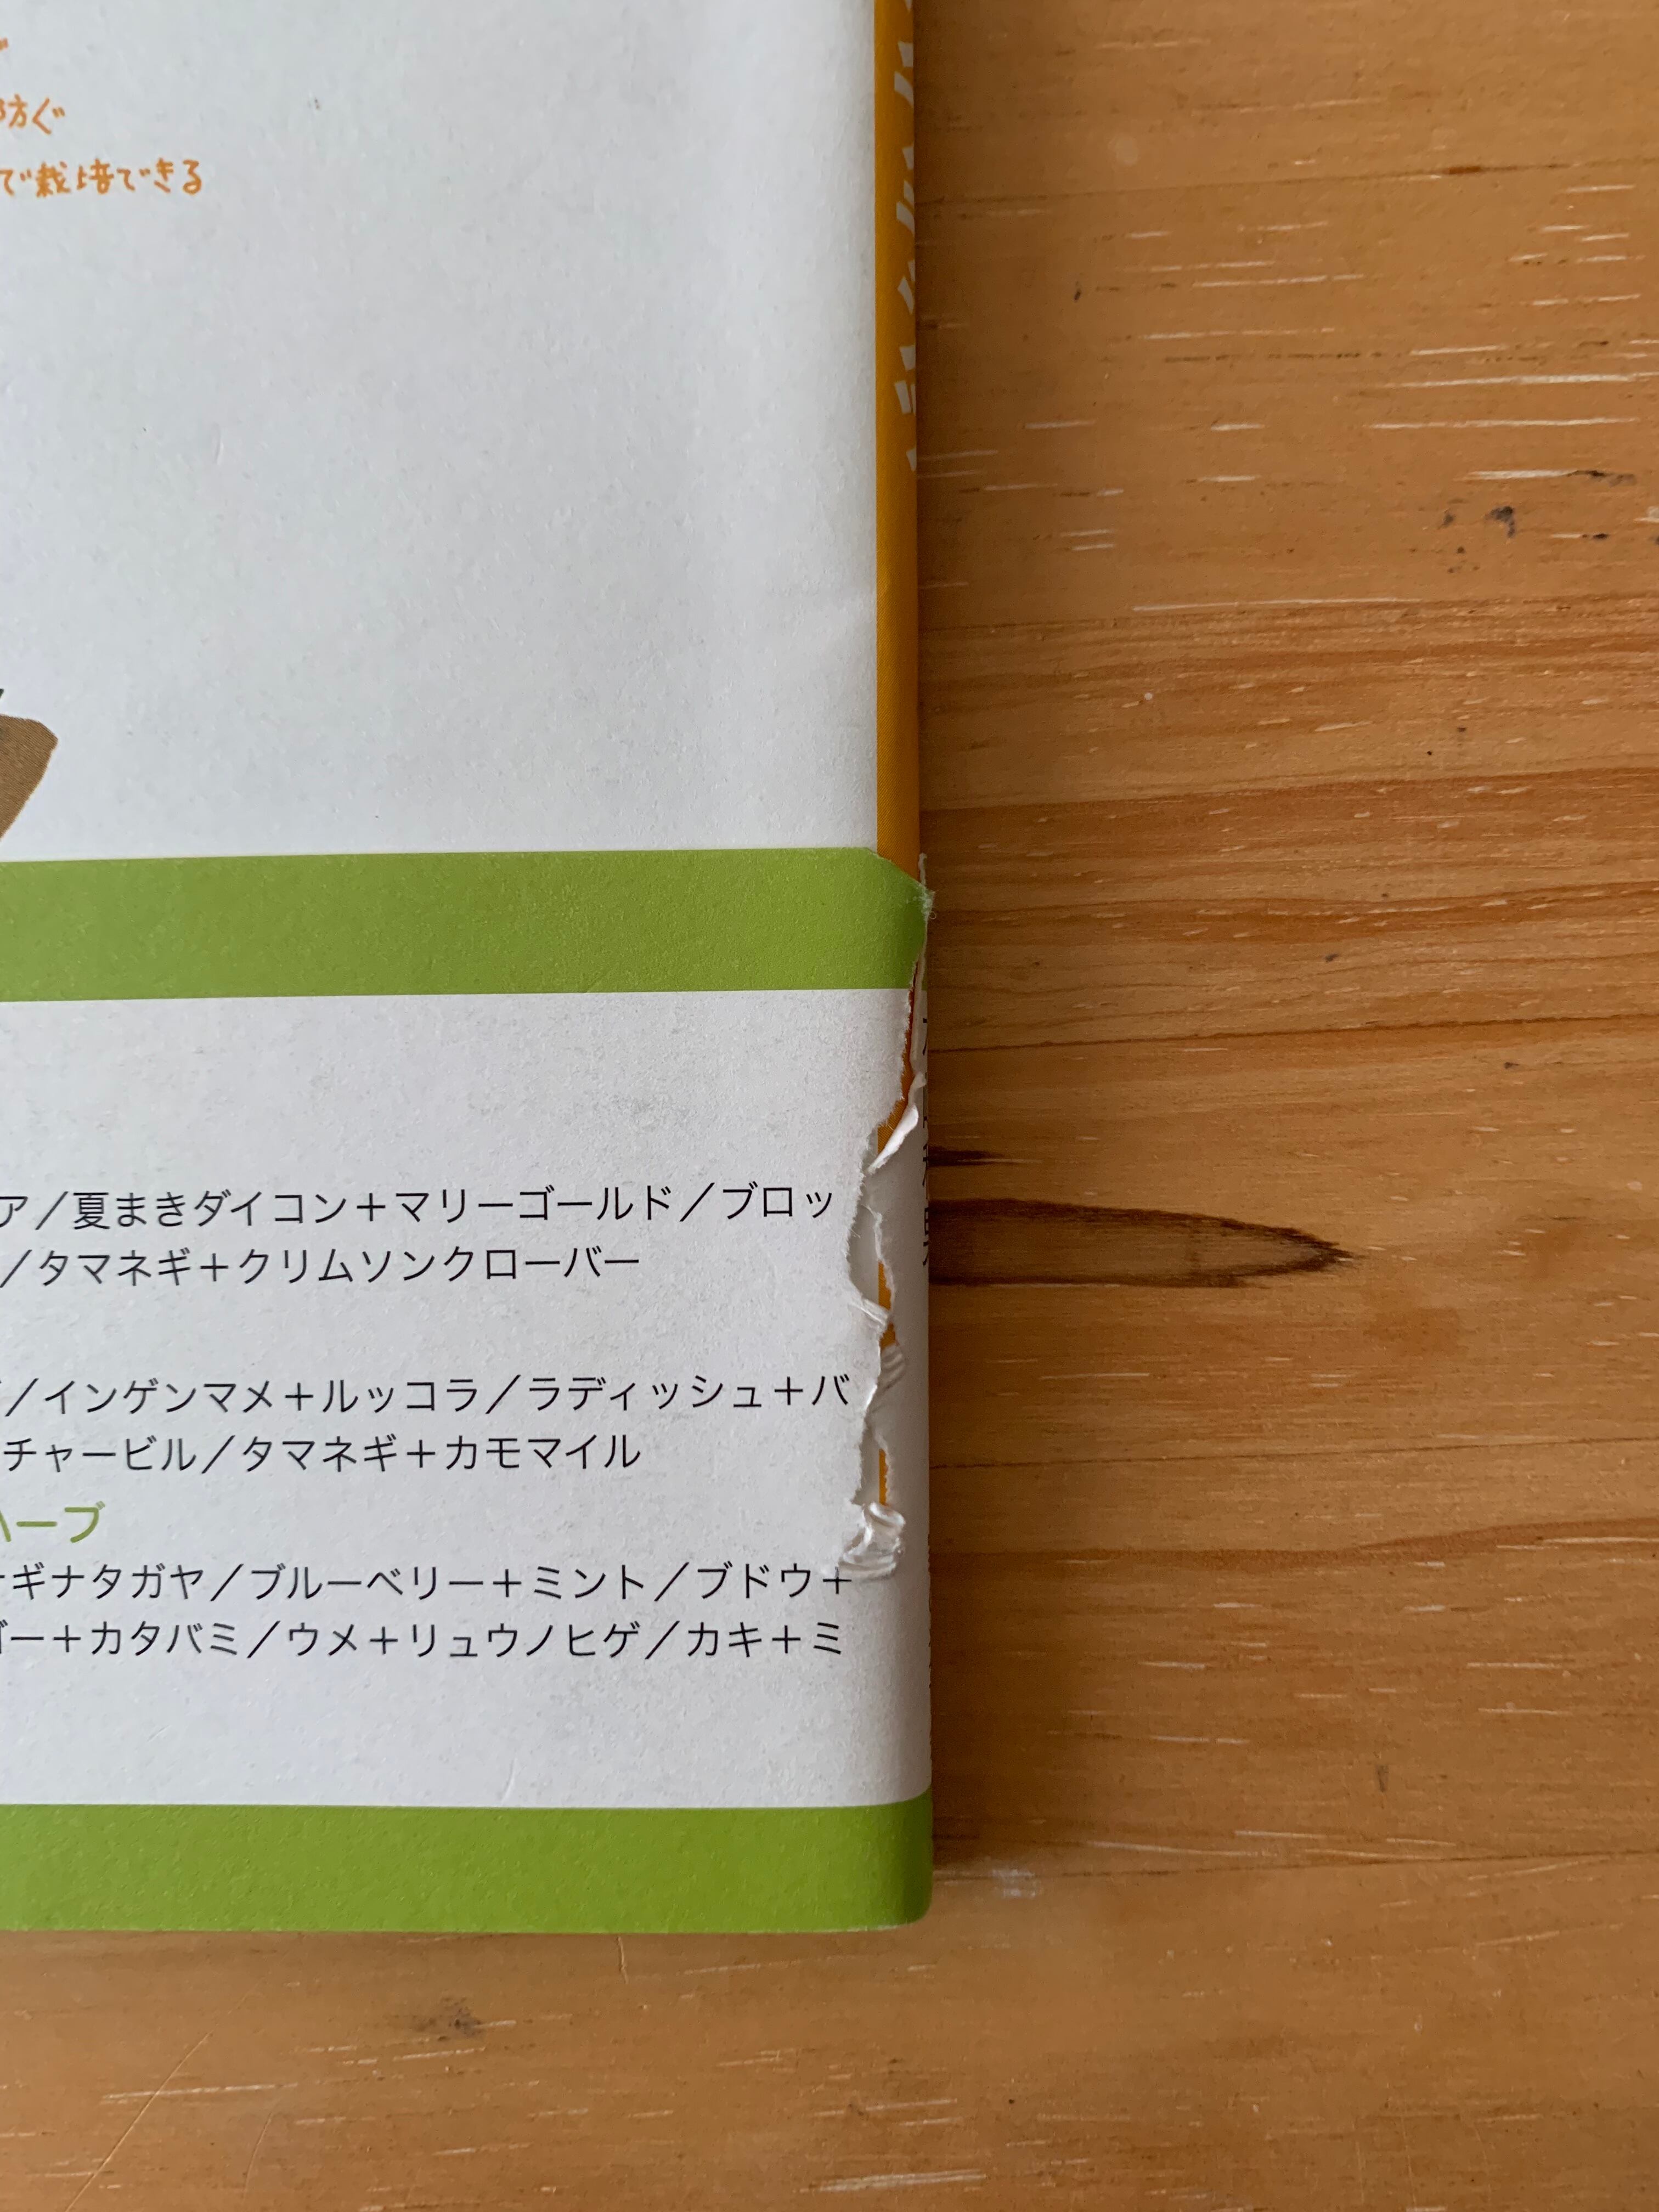 防ぐ
で栽培できる
ア／夏まきダイコン＋マリーゴールド／ブロッ
／タマネギ＋クリムソンクローバー
／インゲンマメ＋ルッコラ／ラディッシュ＋バ
チャービル／タマネギ＋カモマイル
ハーブ
ナギナタガヤ／ブルーベリー＋ミント／ブドウ＋
ゴー＋カタバミ／ウメ＋リュウノヒゲ／カキ＋ミ